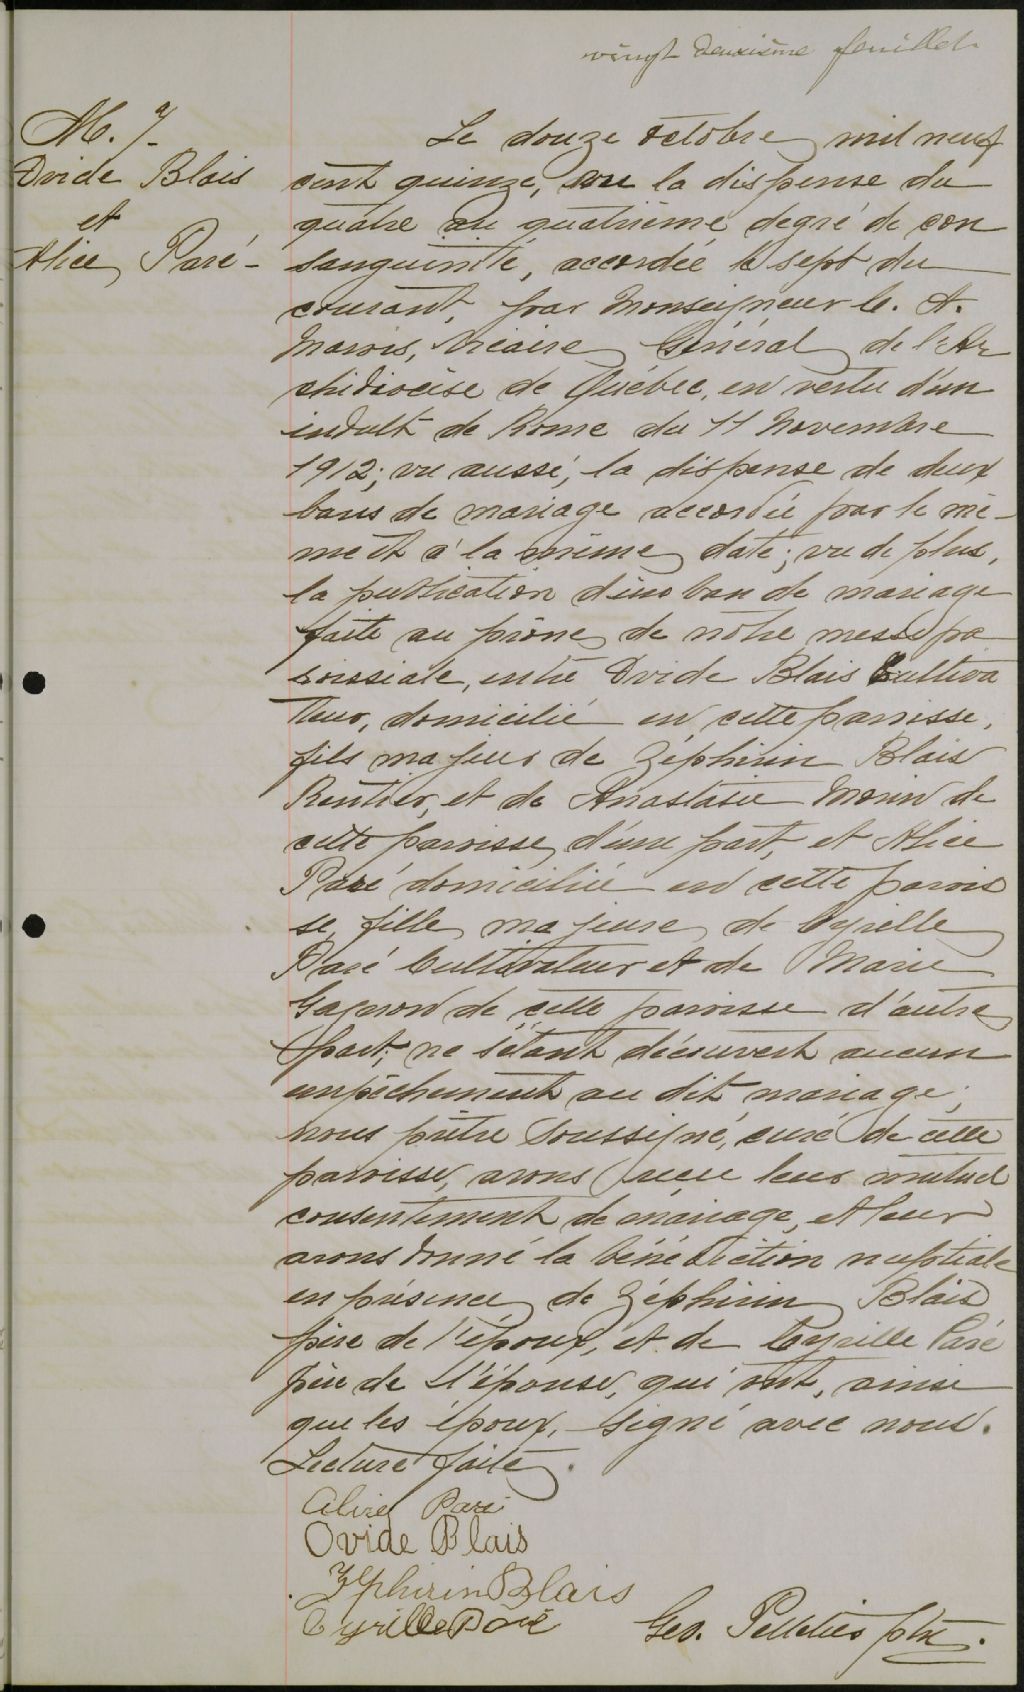 vingt deuxième feuillet
M. 7.
Ovide Blais
et
Alice Paré -
Le douze octobre mil neuf
cent quinze, vu la dispense du
quatre au quatrième degré de con
sanguinité, accordée le sept du
courant, par Monseigneur C. A.
Marois, Vicaire Général de l'Ar
chidiocèse de Québec, en vertu d'un
indult de Rome du 11 Novembre
1912; vu aussi, la dispense de deux
bans de mariage accordée par le mê-
me et à la même date; vu de plus,
la publication d'un ban de mariage
faite au prône de notre messe pa
roissiale, entre Ovide Blais Cultiva
teur, domicilié en cette paroisse,
fils majeur de Zéphirin Blais
Rentier, et de Anastasie Morin de
cette paroisse, d'une part, et Alice
Paré domiciliée en cette parois
se, fille majeure de Cyrille
Paré Cultivateur et de Marie
Gagnon de cette paroisse d'autre
part; ne s'étant découvert aucun
empêchement au dit mariage;
Nous prêtre soussigné, curé de cette
paroisse, avons reçu leur mutuel
consentement de mariage, et leur
avons donné la bénédiction nuptiale
en présence de Zéphirin Blais
père de l'époux, et de Cyrille Paré
père de l'épouse, qui ont, ainsi
que les époux, signé avec nous.
Lecture faite.
Alice Paré
Ovide Blais
Zéphirin Blais
Cyrille Paré
Geo. Pelletier ptre.